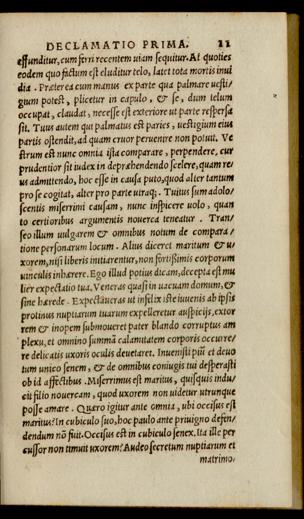 DECLAMATIO PRIMA. 11
effunditur, cum ferri recentem uiam sequitur. At quoties
eodem quo factum est eluditur telo, latet tota mortis inui
dia. Præterea cum manus ex parte qua palmare uesti/
gium potest, plicetur in capulo, & se, dum telum
occupat, claudat, necesse est exteriore ut parte respersa
sit. Tuus autem qui palmatus est paries, uestigium eius
partis ostendit, ad quam cruor peruenire non potuit. Ve
strum est nunc omnia ista comparare, perpendere, cur
prudentior sit iudex in deprehendendo scelere, quam re/
us admittendo, hoc esse in causa puto, quod alter tantum
pro se cogitat, alter pro parte utraq;. Tuitus sum adolo/
scentis miserrimi causam, nunc inspicere uolo, quan
to certioribus argumentis nouerca teneatur. Tran/
seo illum uulgarem & omnibus notum de compara/
tione personarum locum. Alius diceret maritum & u/
xorem, nisi liberis initiarentur, non fortissimis corporum
uinculis inhærere. Ego illud potius dicam, decepta est mu
lier expectatio tua, Veneras quasi in uacuam domum, &
sine hærede. Expectaueras ut infelix iste iuuenis ab ipsis
protinus nuptiarum tuarum expelleretur auspicijs, extor
rem & inopem submoueret pater blando corruptus am
plexu, et omnino summã calamitatem corporis occurre/
re delicatis uxoris oculis deuetaret. Inuenisti piũ et deuo
tum unico senem, & de omnibus coniugis tui desperasti
ob id affectibus. Miserrimus est maritus, quisquis indu/
cit filio nouercam, quod uxorem non uidetur utrunque
posse amare. Quæro igitur ante omnia, ubi occisus est
maritus? In cubiculo suo, hoc paulo ante priuigno defen/
dendum nõ fuit. Occisus est in cubiculo senex. Ita ille per
cussor non timuit uxorem? Audeo secretum nuptiarum et
matrimo/